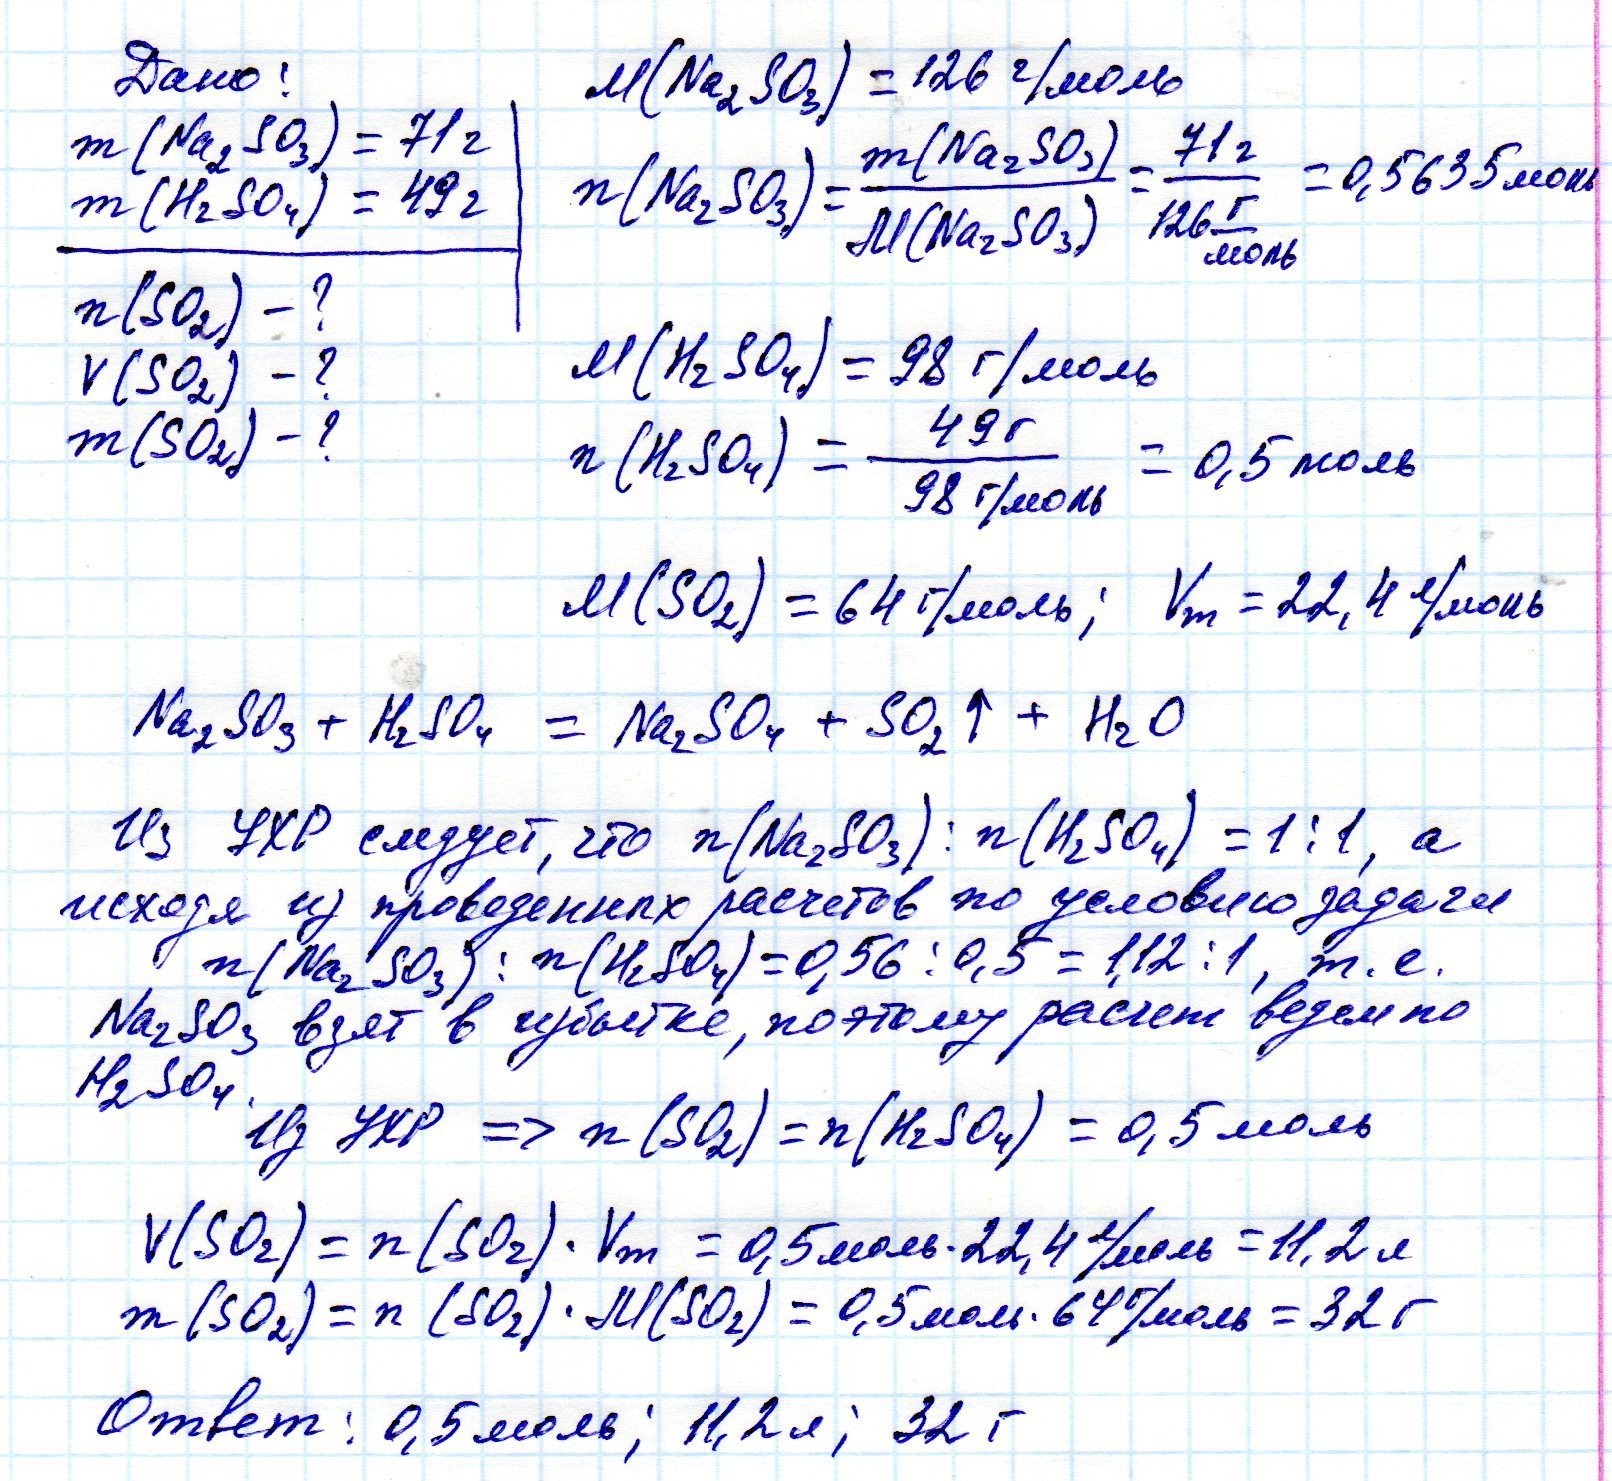 Дано:
m(Na₂SO₃) = 71 г
m(H₂SO₄) = 49 г
n(SO₂) – ?
V(SO₂) – ?
m(SO₂) – ?
M(Na₂SO₃) = 126 г/моль
n(Na₂SO₃) = m(Na₂SO₃) / M(Na₂SO₃) = 71 г / 126 г/моль = 0,5635 моль
M(H₂SO₄) = 98 г/моль
n(H₂SO₄) = 49 г / 98 г/моль = 0,5 моль
M(SO₂) = 64 г/моль; Vm = 22,4 л/моль
Na₂SO₃ + H₂SO₄ = Na₂SO₄ + SO₂↑ + H₂O
Из УХР следует, что n(Na₂SO₃) : n(H₂SO₄) = 1 : 1, а
исходя из проведенных расчетов по условию задачи
n(Na₂SO₃) : n(H₂SO₄) = 0,56 : 0,5 = 1,12 : 1, т.е.
Na₂SO₃ взят в избытке, поэтому расчет ведем по
H₂SO₄.
Из УХР => n(SO₂) = n(H₂SO₄) = 0,5 моль
V(SO₂) = n(SO₂) · Vm = 0,5 моль · 22,4 л/моль = 11,2 л
m(SO₂) = n(SO₂) · M(SO₂) = 0,5 моль · 64 г/моль = 32 г
Ответ: 0,5 моль; 11,2 л; 32 г